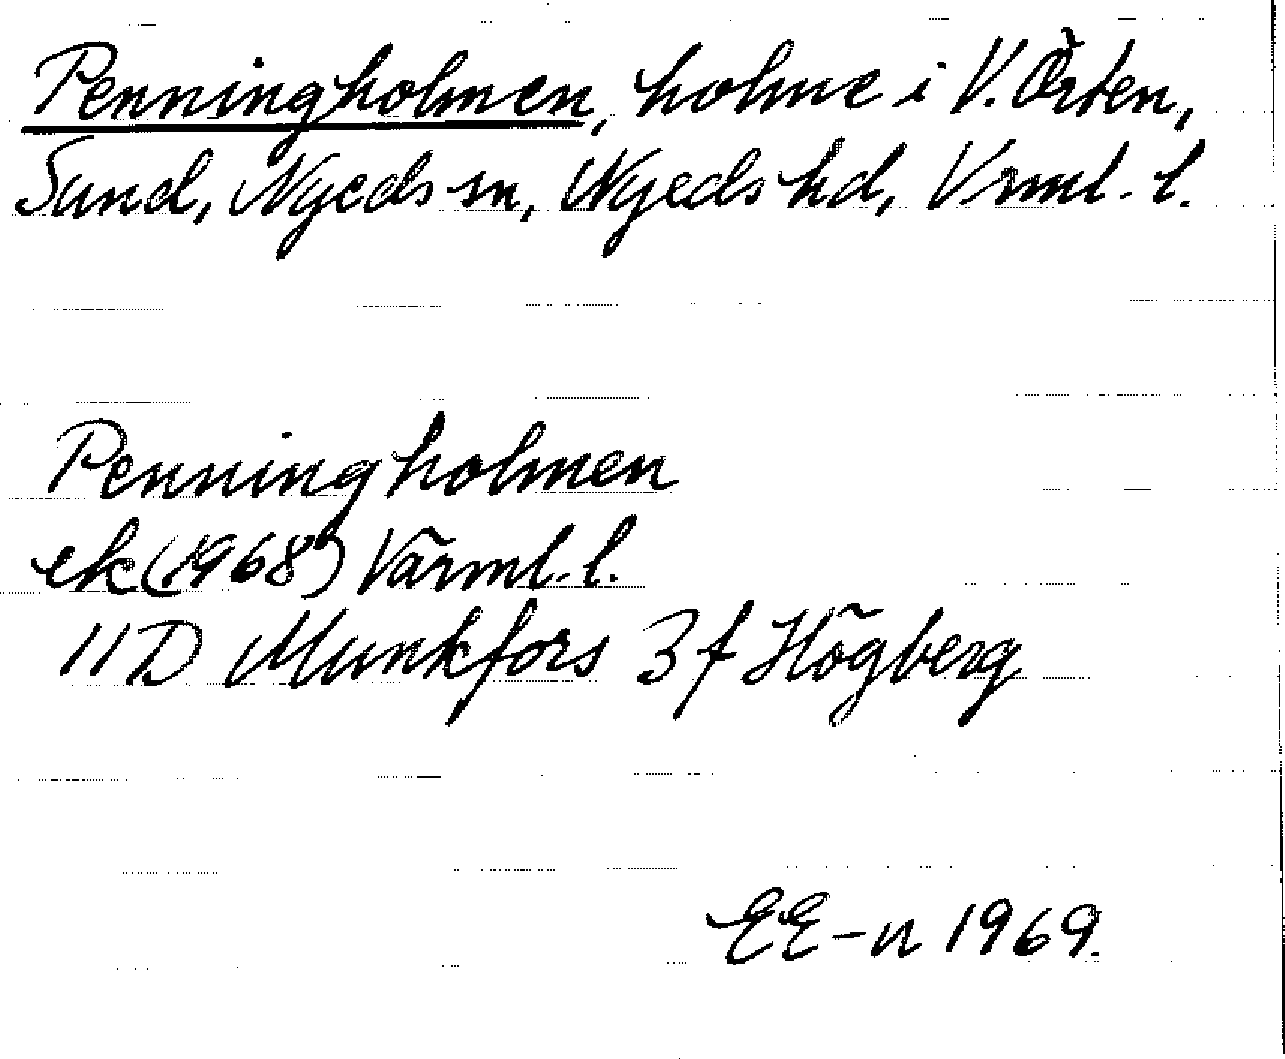 Penningholmen, holme i V. Örten,
Sund, Nyeds sn, Nyeds hd, Vrml. l.
Penningholmen
ek (1968) Värml. l.
11D Munkfors 3f Högberg
EE-n 1969.